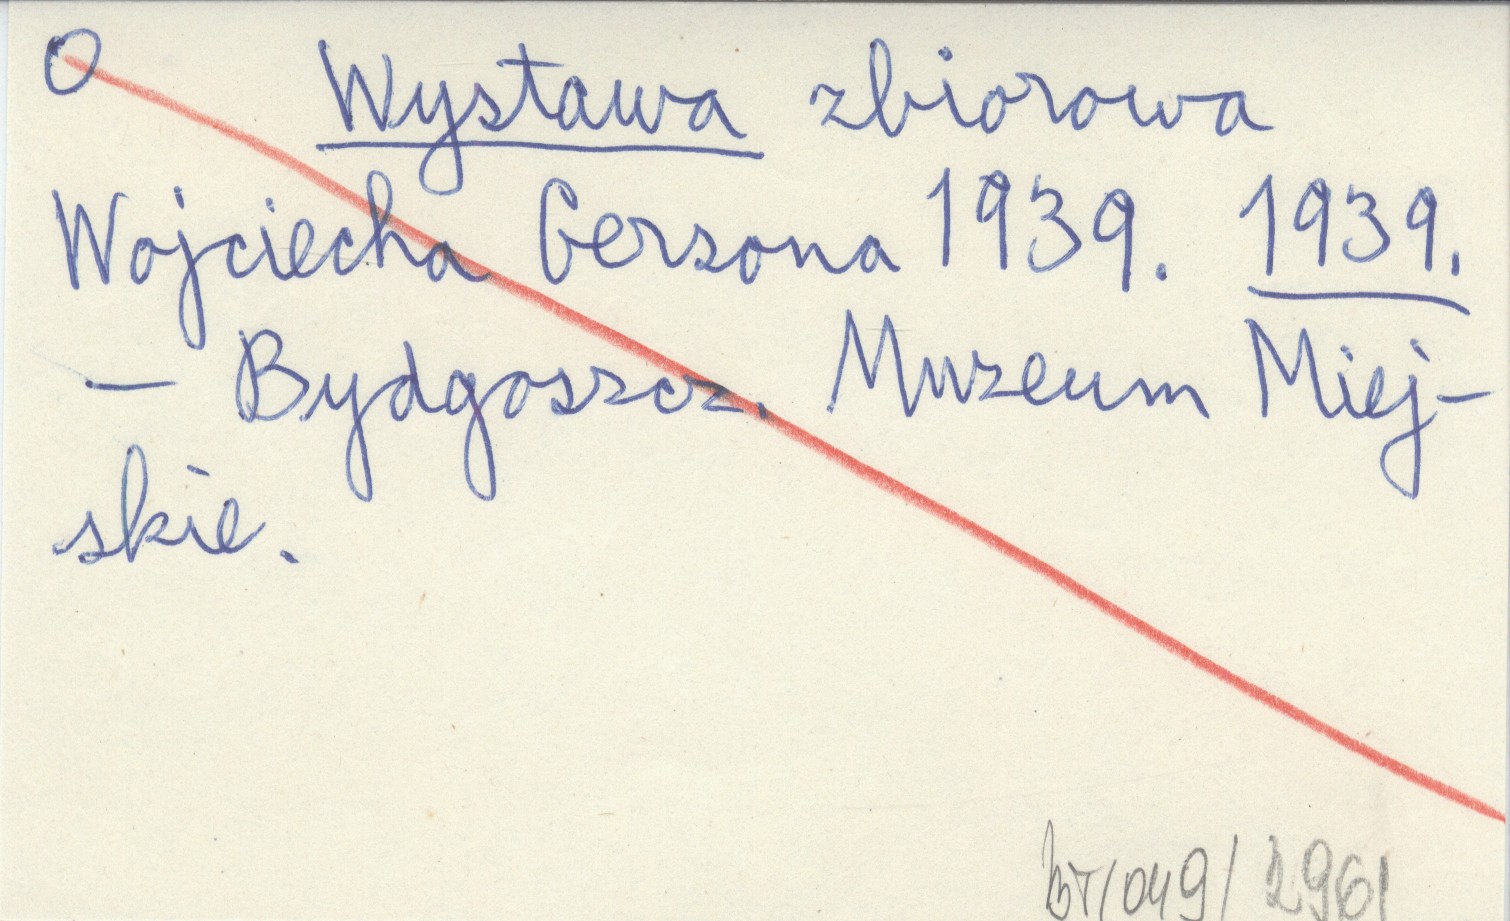 O Wystawa zbiorowa
Wojciecha Gersona 1939. 1939.
— Bydgoszcz. Muzeum Miej-
skie.
BT/049/2961